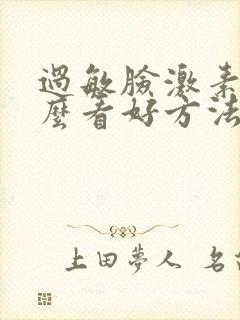 過敏臉激素
麼看好方法
上田夢人 名